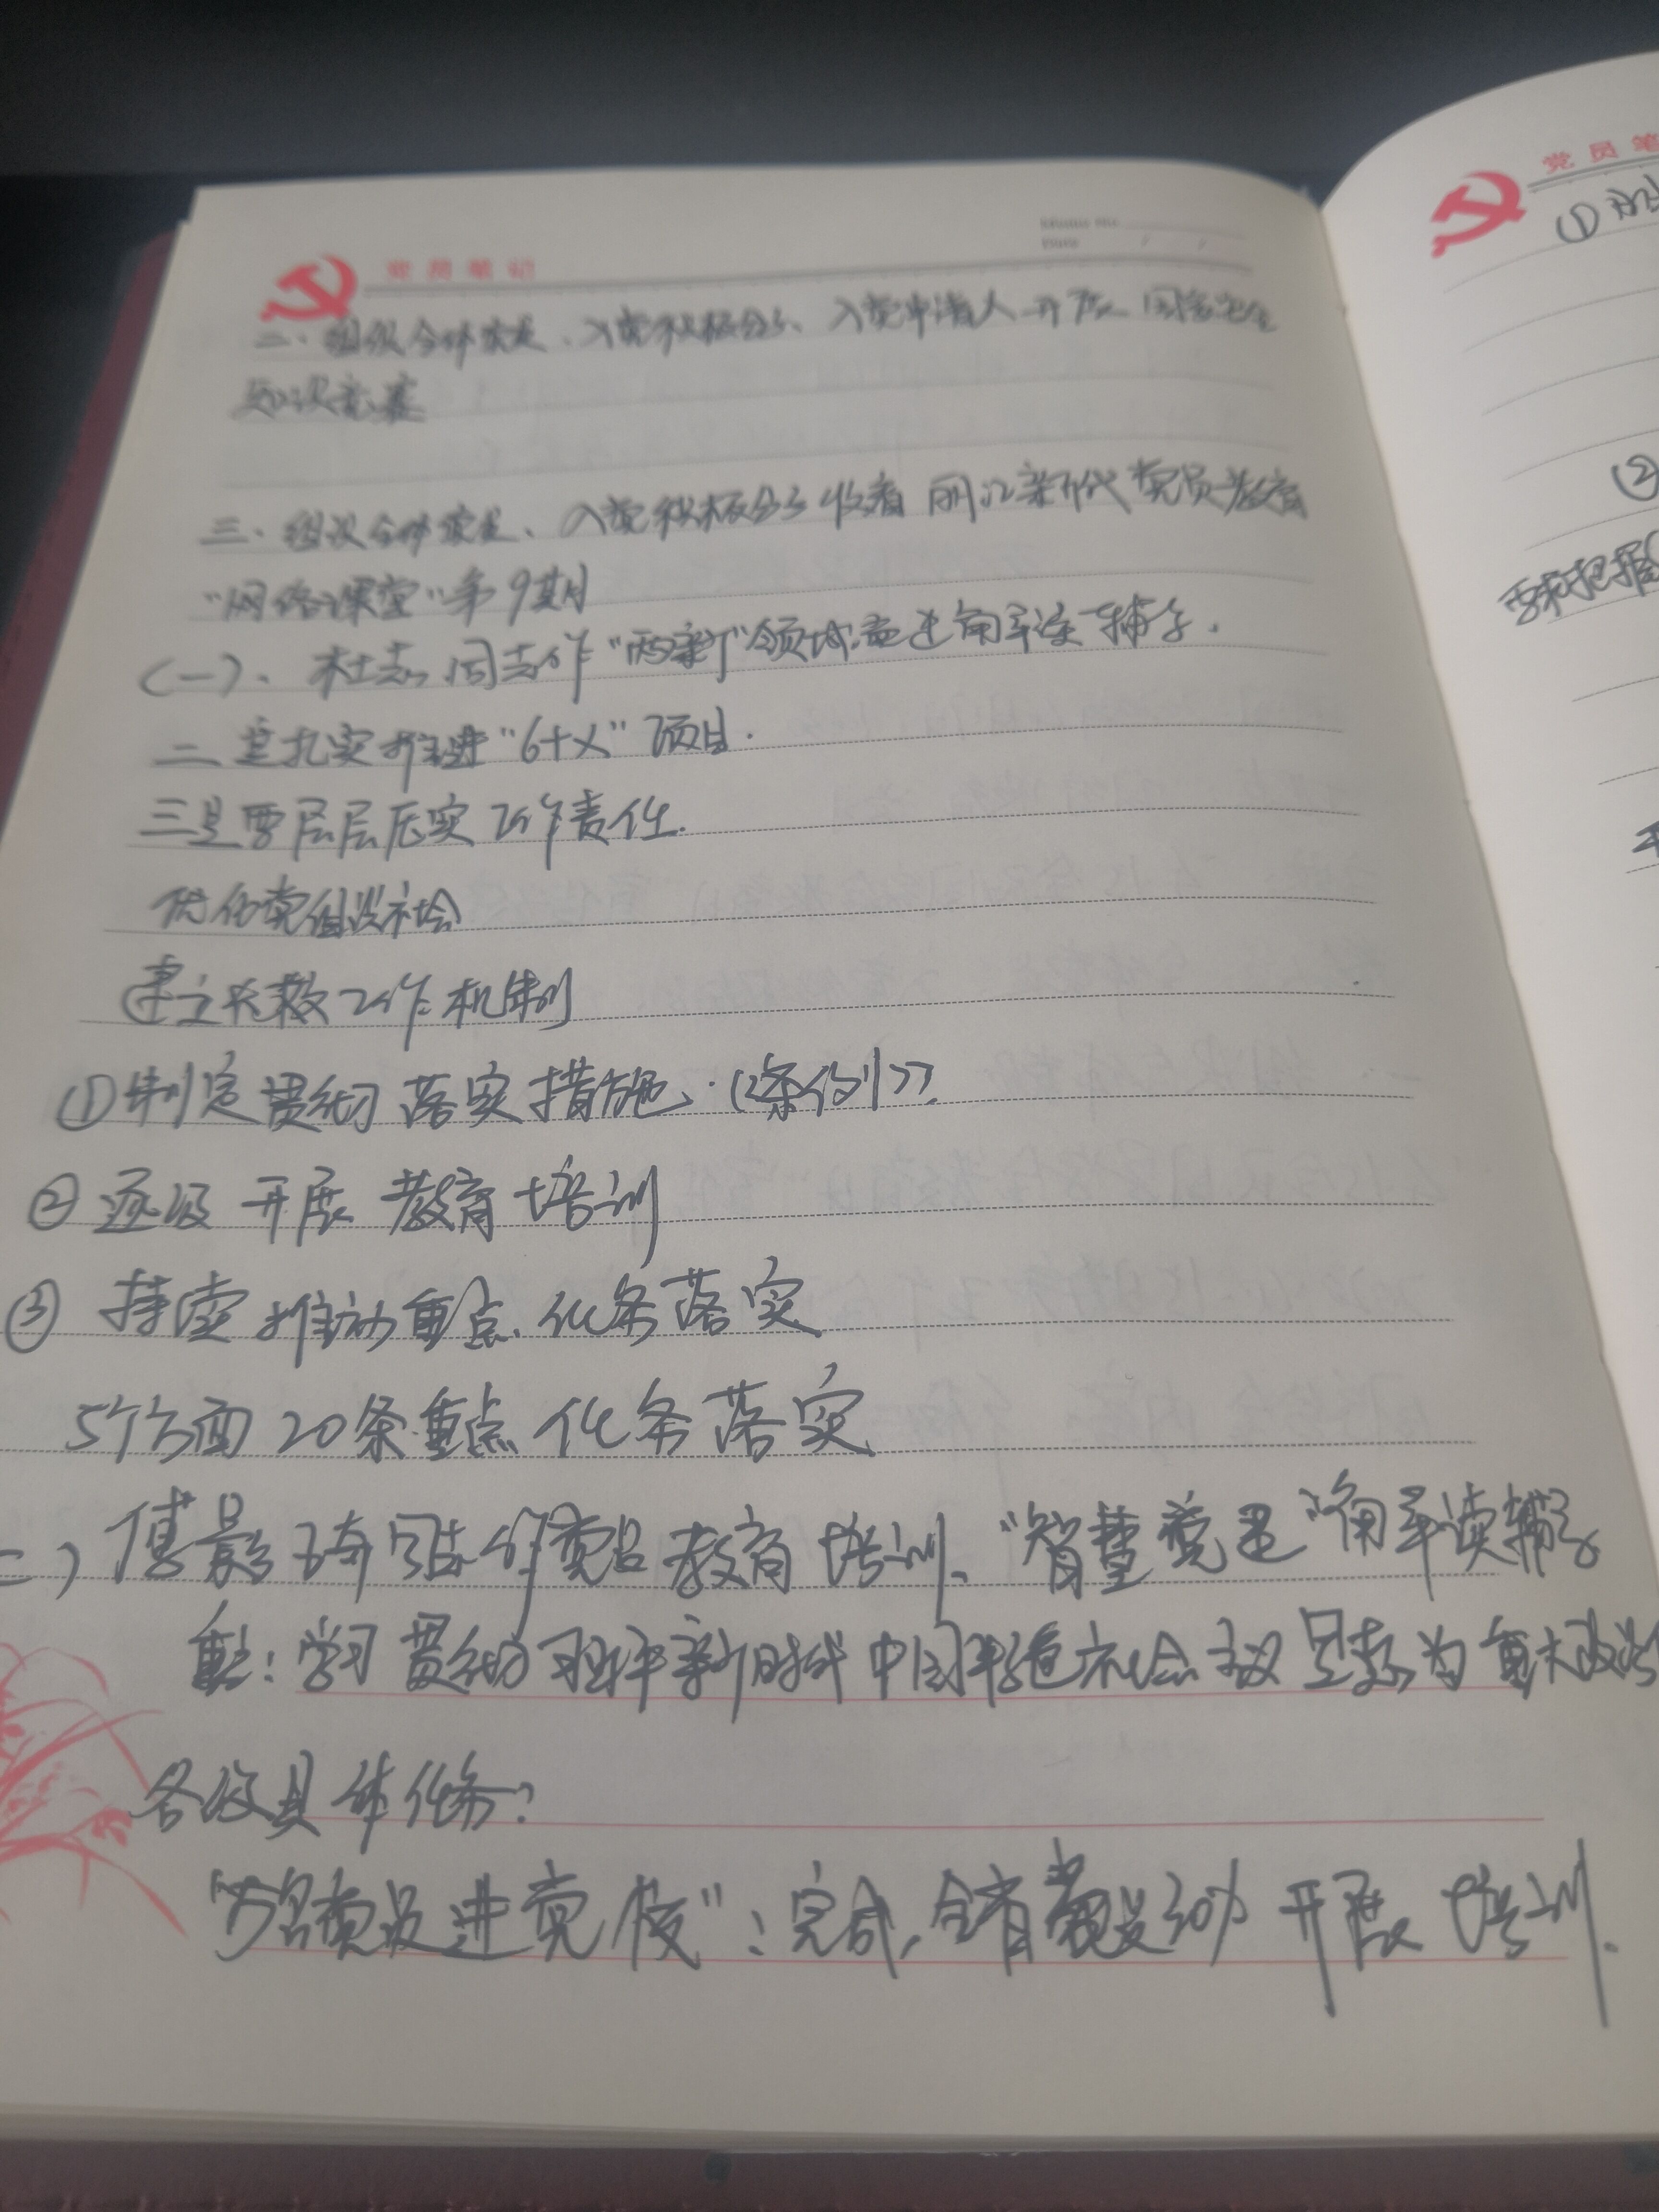 党员笔记
Mobile No
Date / /
二、组织全体党员、入党积极分子、入党申请人开展国家安全
知识竞赛
三、组织全体党员、入党积极分子收看丽江新时代党员教育
“网络课堂”第9期
(一)、杜志同志作“两新”领域党建 解读辅导.
二是扎实推进“6+X”项目.
三是要层层压实工作责任.
优化党组设社会
建立长效工作机制
①制定贯彻落实措施、《条例》.
②逐级开展教育培训
③持续推动重点任务落实
5个方面20条重点任务落实
二)傅景琦同志作党员教育培训、“智慧党建” 解读辅导
重点:学习贯彻习近平新时代中国特色社会主义思想为重大政治
各级具体任务:
“万名党员进党校”:完成全省党员30% 开展培训.
党员笔
①
②
要求把握